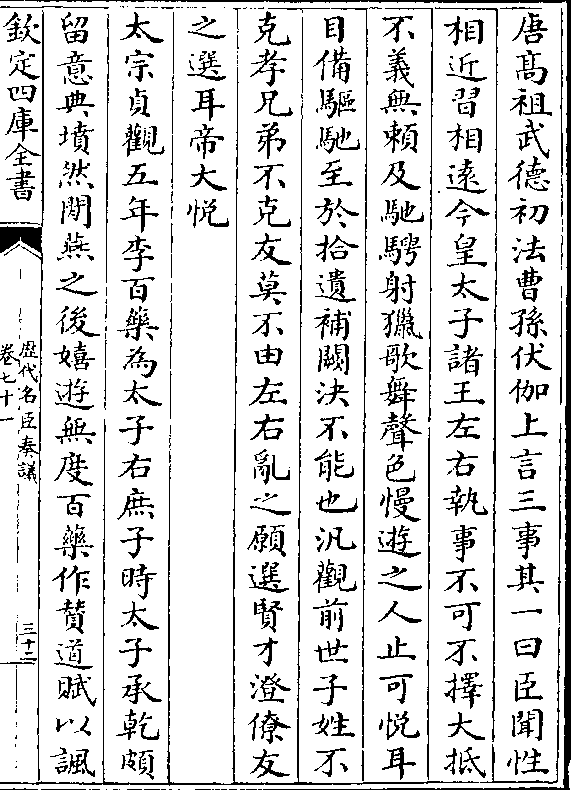 唐髙祖武徳初法曹孫伏伽上言三事其一曰臣聞性
相近習相逺今皇太子諸王左右執事不可不擇大抵
不義無頼及馳騁射獵歌舞聲色慢遊之人止可悦耳
目備驅馳至於拾遺補闕决不能也汎觀前世子姓不
克孝兄弟不克友莫不由左右亂之願選賢才澄僚友
之選耳帝大悦
太宗貞觀五年李百藥為太子右庶子時太子承乾頗
留意典墳然閒燕之後嬉遊無度百藥作賛道賦以諷
欽定四庫全書
歴代名臣奏議
卷七十一
三十二